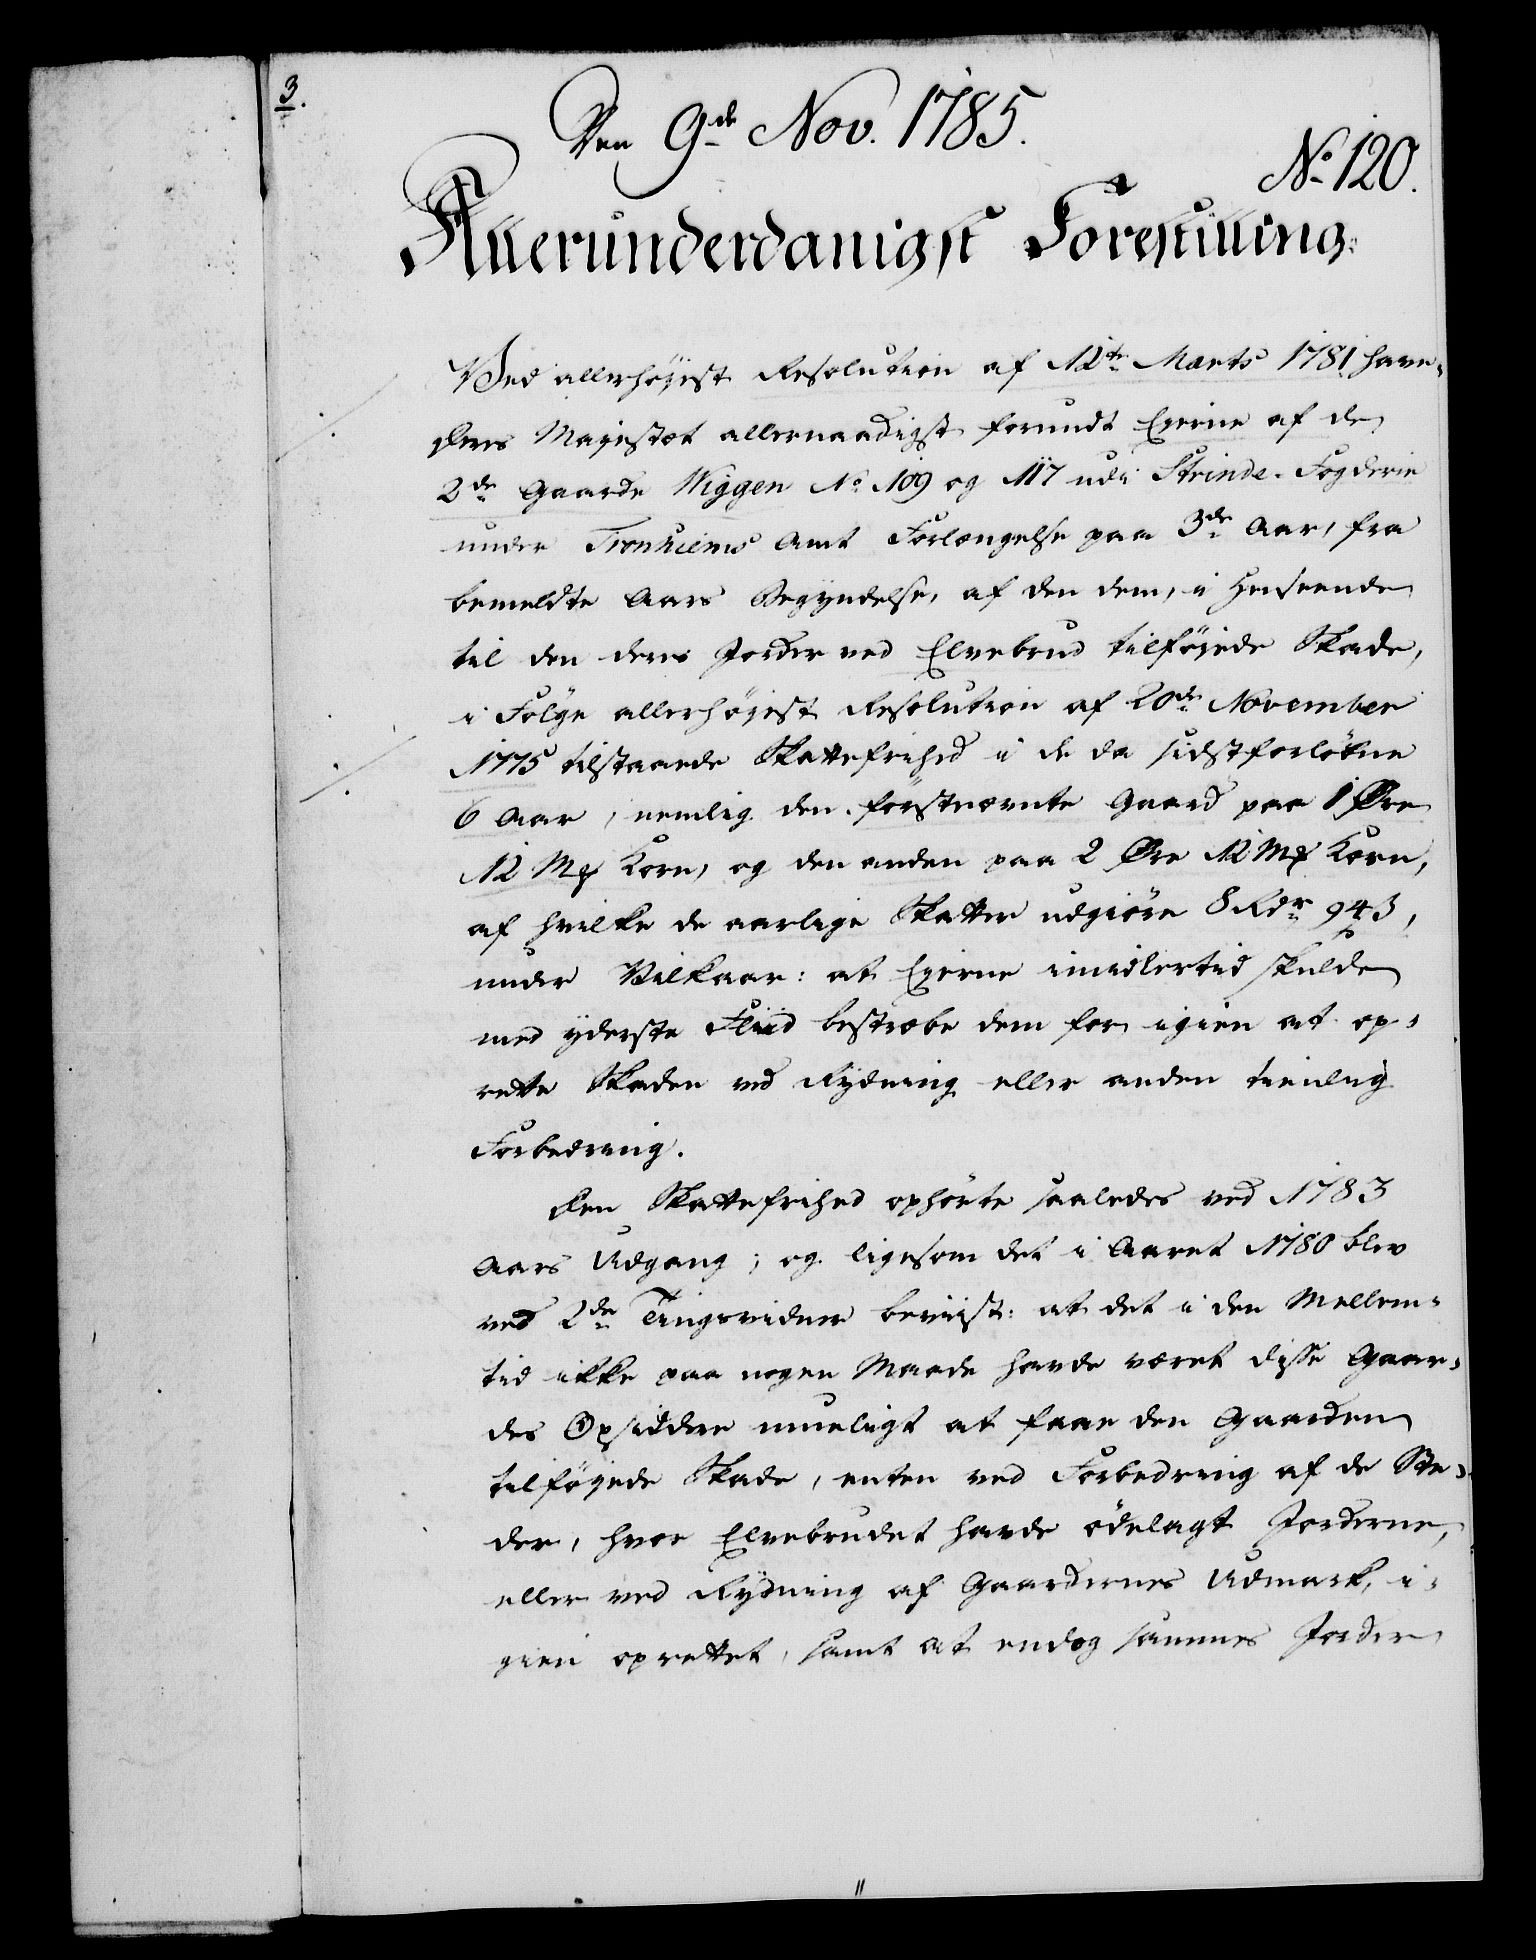 3.
Den 9de Nov. 1785.
No 120.
Allerunderdanigst Forestilling.
Ved allerhöjest Resolution af 12te Marts 1781 have
Deres Majestæt allernaadigst forundt Ejerne af de
2de Gaarde Wiggen No 109 og 117 udi Strinde-Fogderie
under Tronhiems Amt Forlængelse paa 3de Aar, fra
bemeldte Aars Begyndelse, af den dem, i Henseende
til den deres Jorder ved Elvebrud tilföjede Skade,
i Fölge allerhöjest Resolution af 20de November
1775 tilstaaede Skattefrihed i de da sidstforløbne
6 Aar, nemlig den förstnævnte Gaard paa 1 Øre
12 Mk Korn, og den anden paa 2 Øre 12 Mk Korn,
af hvilke de aarlige Skatter udgiöre 8 Rdr 94 ß,
under Vilkaar: at Ejerne imidlertid skulde
med yderste Fliid bestræbe dem for igien at op-
rette Skaden ved Rydning eller anden tienlig
Forbedring.
Den Skattefrihed ophörte saaledes ved 1783
Aars Udgang; og ligesom det i Aaret 1780 blev
ved 2de Tingsvidner beviist: at det i den Mellem-
tid ikke paa nogen Maade havde været disse Gaar-
des Opsiddere mueligt at faae den Gaarden
tilföjede Skade, enten ved Forbedring af de Ste-
der, hvor Elvebrudet havde ödelagt Jorderne,
eller ved Rydning af Gaardernes Udmark, i-
gien oprettet, samt at endog sammes Jorder